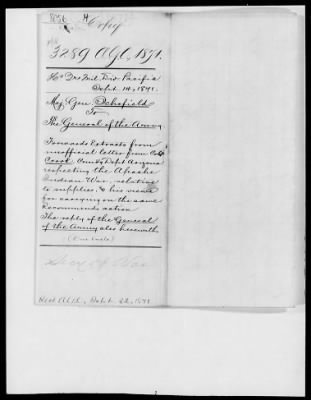 1856
Copy
3289 AGO, 1871.
Hd Qrs Mil. Div. Pacific
Sept. 14, 1871.
Maj. Gen Schofield
To
The General of the Army
Forwards Extracts from
unofficial letter from Col.
Crook Comdg Dept Arizona
respecting the Apache
Indian War, relative
to supplies, & his views
for carrying on the same
Recommends action
The reply of the General
of the Army also herewith
(One Enclo)
Secy of War
Recd A.G.O., Sept. 22, 1871